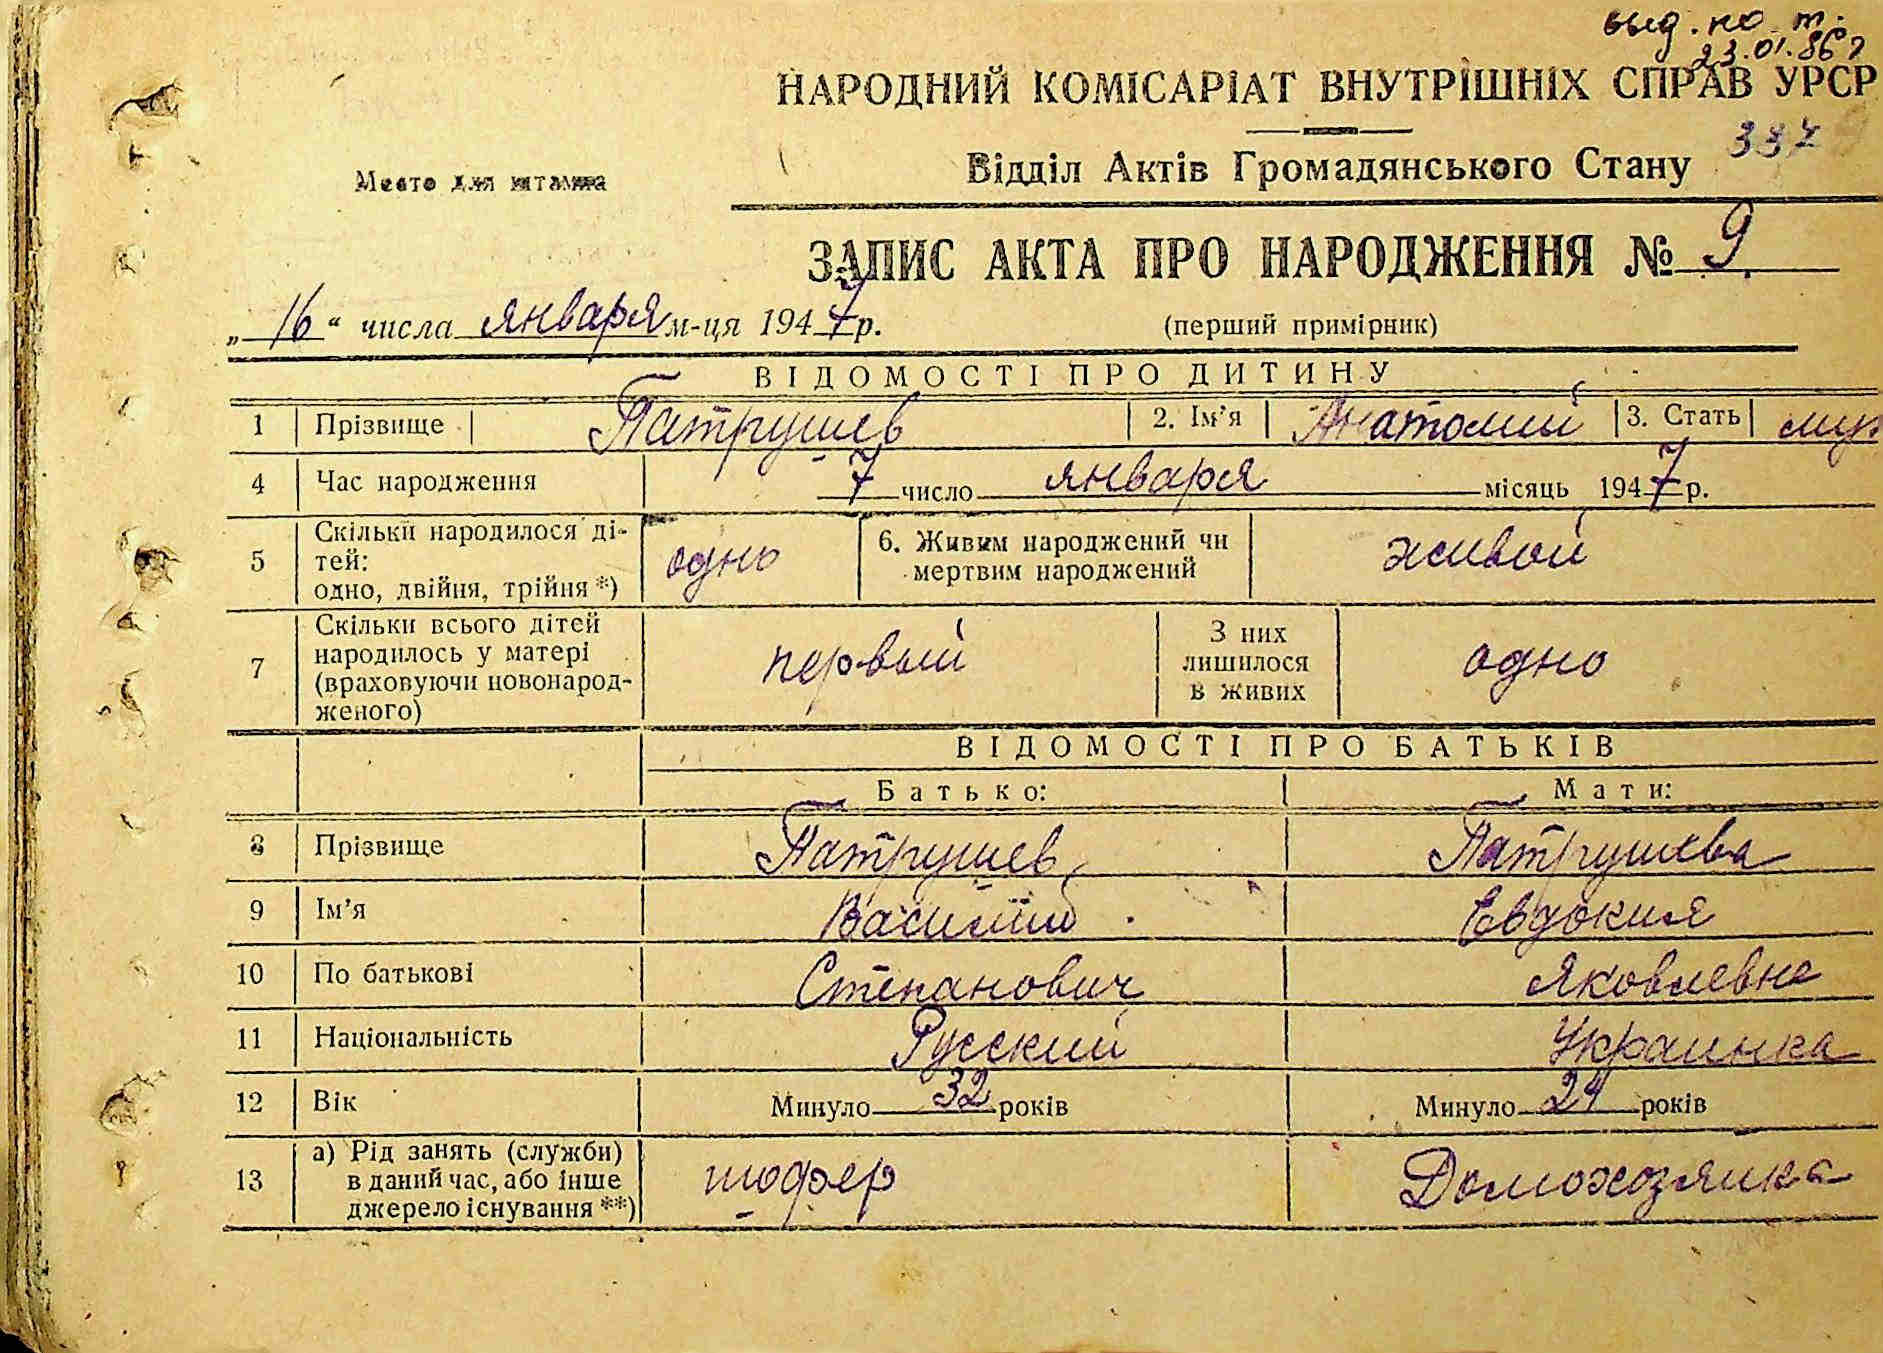 выд. по т.
23.01.86 г
НАРОДНИЙ КОМІСАРІАТ ВНУТРІШНІХ СПРАВ УРСР
337
Место для штампа
Відділ Актів Громадянського Стану
ЗАПИС АКТА ПРО НАРОДЖЕННЯ № 9
„ 16 “ числа января м-ця 1947 р. (перший примірник)
ВІДОМОСТІ ПРО ДИТИНУ
1 Прізвище Патрушев 2. Ім’я Анатолий 3. Стать муж
4 Час народження 7 число января місяць 1947 р.
5 Скільки народилося ді-
тей:
одно, двійня, трійня *) одно 6. Живим народжений чи
мертвим народжений живой
7 Скільки всього дітей
народилось у матері
(враховуючи новонарод-
женого) первый З них
лишилося
в живих одно
ВІДОМОСТІ ПРО БАТЬКІВ
Батько: Мати:
8 Прізвище Патрушев Патрушева
9 Ім’я Василий Евдокия
10 По батькові Степанович Яковлевна
11 Національність Русский Украинка
12 Вік Минуло 32 років Минуло 24 років
13 а) Рід занять (служби)
в даний час, або інше
джерело існування **) шофер Домохозяйка